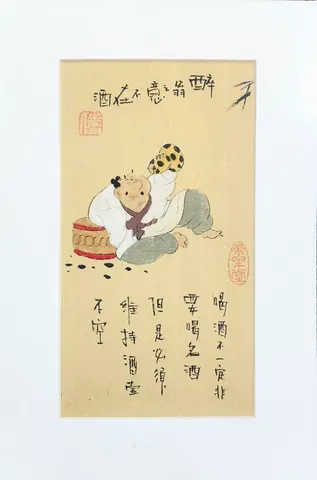 醉翁之意不在酒
喝酒不一定非
要喝名酒
但是必须
维持酒壶
不空